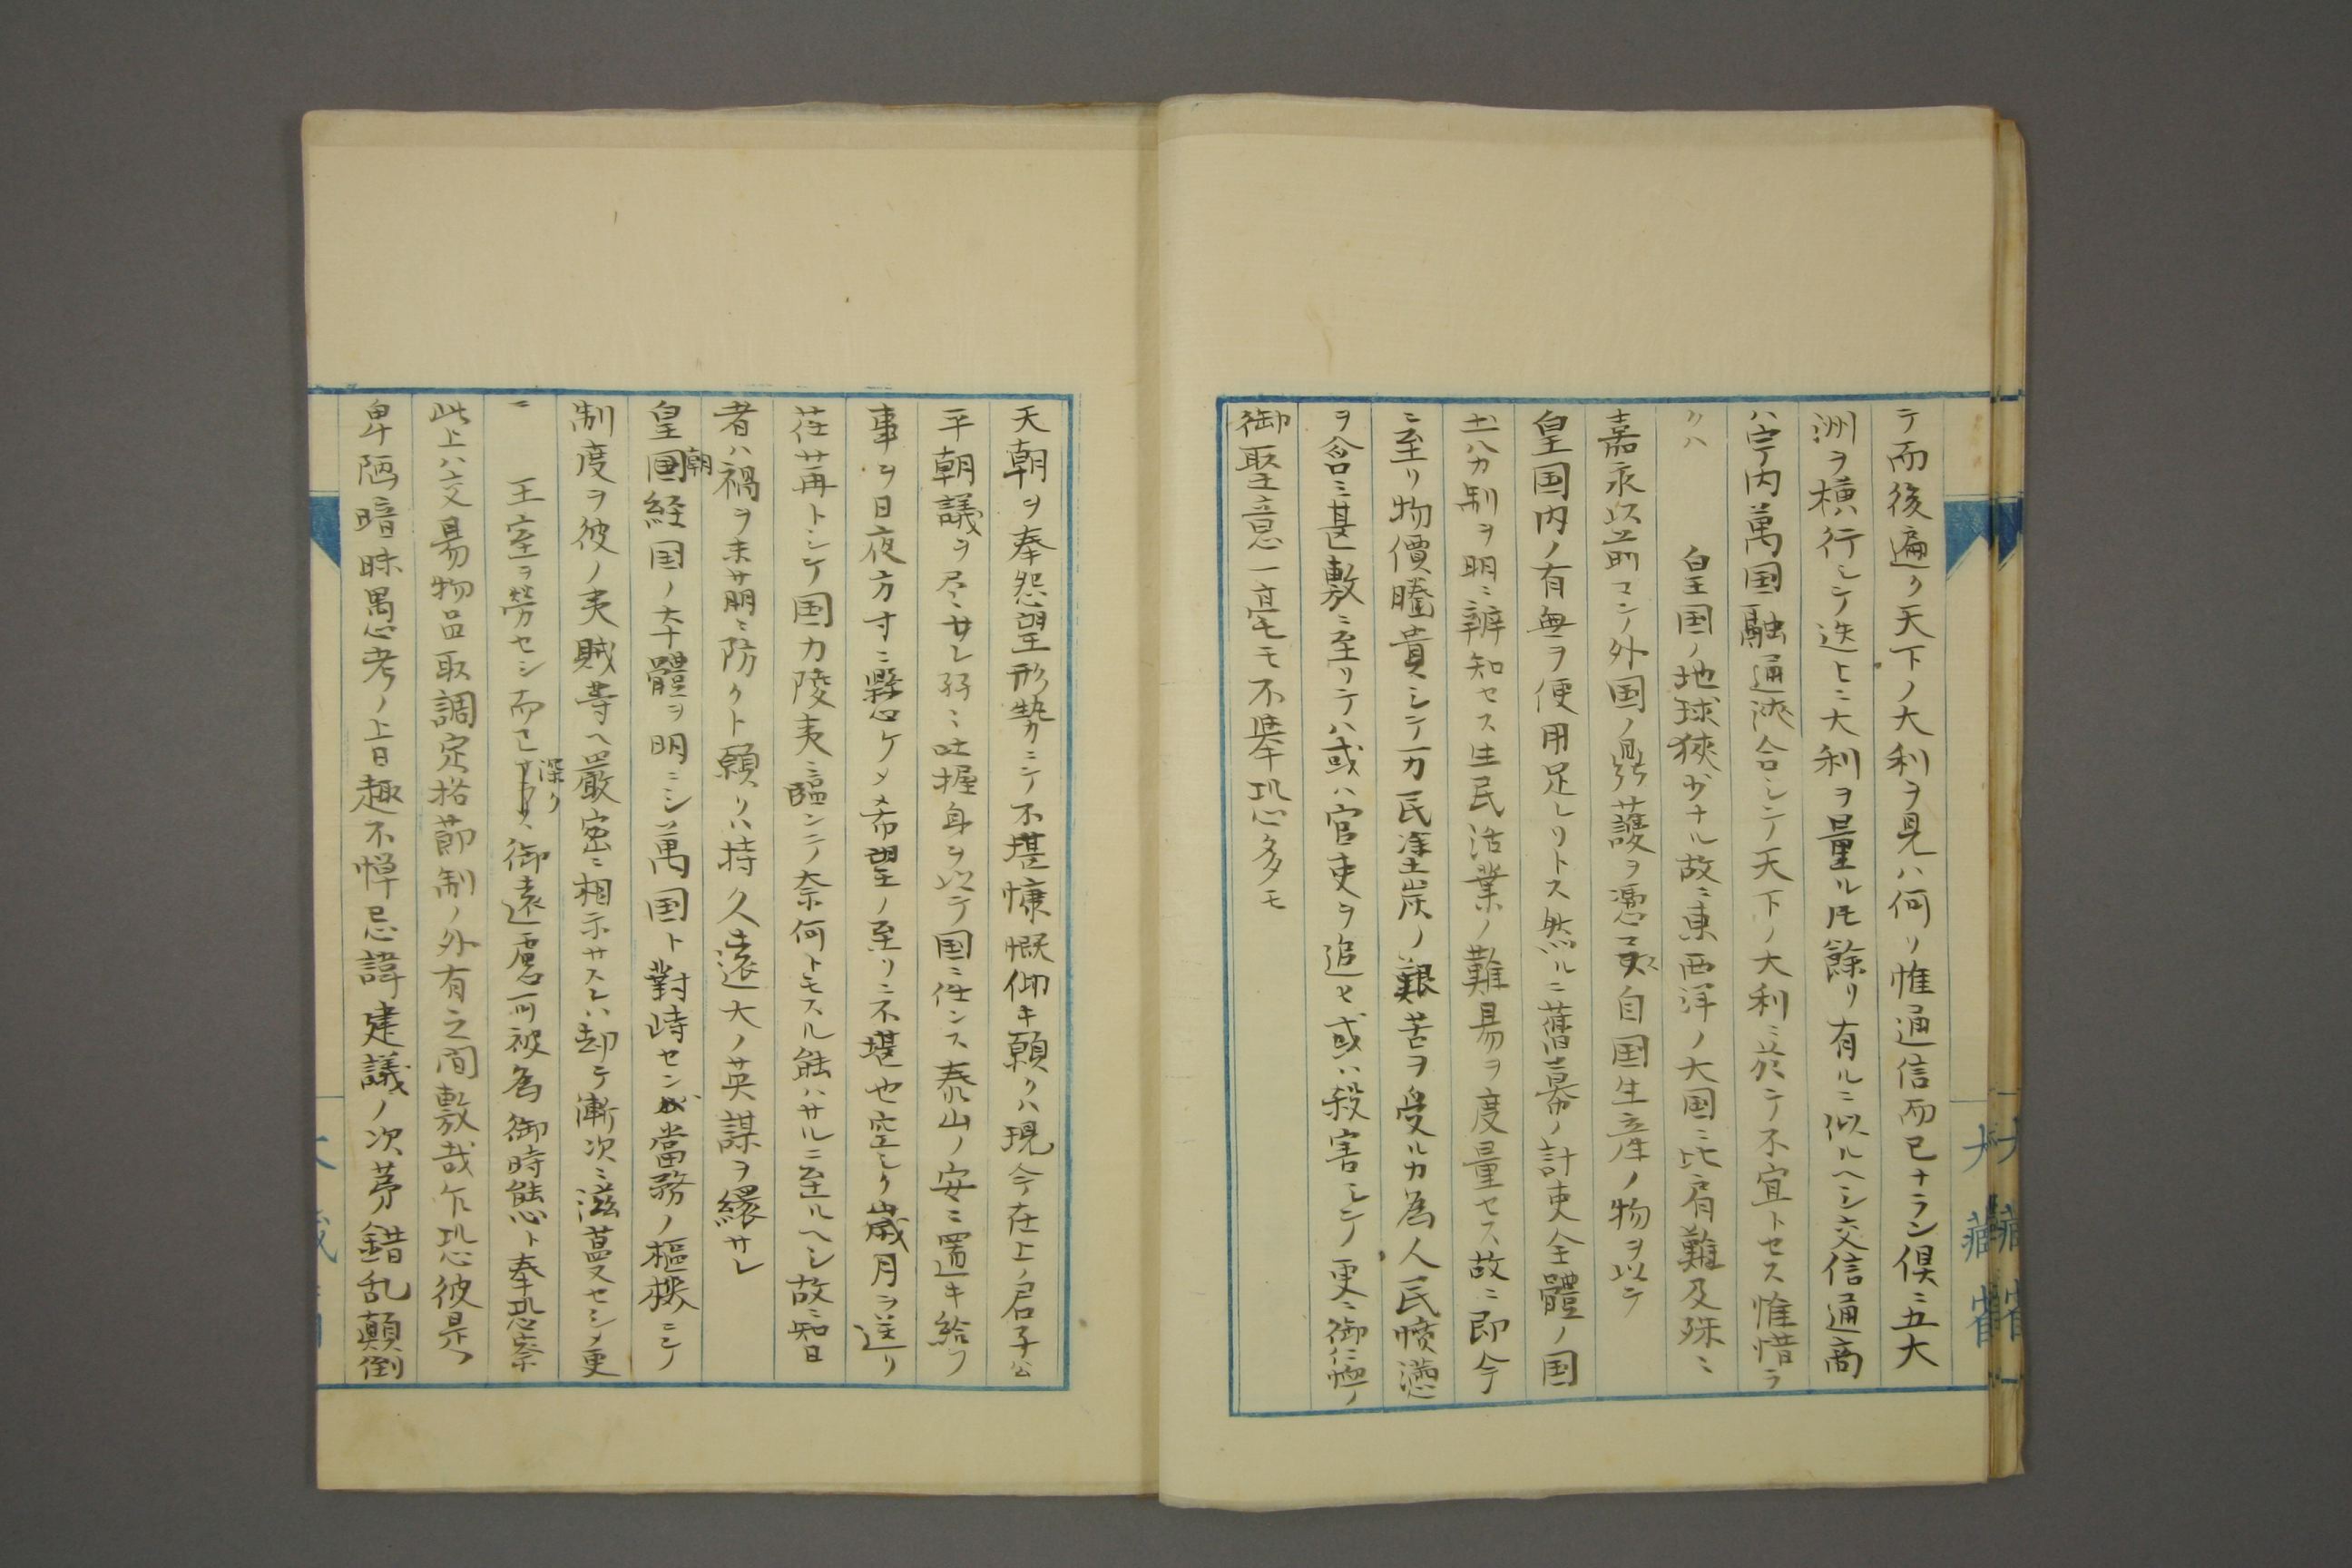 テ而後遍ク天下ノ大利ヲ見ハ何ソ惟通信而已ナラン倶ニ五大
洲ヲ横行シテ迭ヒニ大利ヲ量ル𪜈餘リ有ルニ似ルヘシ交信通商
ハ宇内萬国融通浹合シテ天下ノ大利ニ於テ不宜トセス惟惜ラ
クハ　皇国ノ地球狹少ナル故ニ東西洋ノ大国ニ比肩難及殊ニ
嘉永以前マテ外国ノ爲護ヲ憑マス自国生産ノ物ヲ以テ
皇国内ノ有無ヲ便用足レリトス然ルニ舊幕ノ計吏全體ノ国
土八力制ヲ明ニ辨知セス生民活業ノ難易ヲ度量セス故ニ即今
ニ至リ物價騰貴シテ万民塗炭ノ艱苦ヲ受ルカ為人民憤懣
ヲ含ミ甚敷ニ至リテハ或ハ官吏ヲ追ヒ或ハ殺害シテ更ニ御仁恤ノ
御聖意一毫モ不奉恐多モ
天朝ヲ奉怨望形勢ニテ不堪慷慨仰キ願クハ現今在上ノ君子公
平朝議ヲ尽サレ弥ニ吐握身ヲ以テ国ニ任ンス泰山ノ安ニ置キ給フ
事ヲ日夜方寸ニ懸ケメ希望ノ至リニ不堪也空シク歳月ヲ送リ
荏苒トシテ国力陵夷ニ臨ンテ奈何トモスル能ハサルニ至ルヘシ故ニ知日
者ハ禍ヲ未萠ニ防クト願クハ持久遠大ノ英謀ヲ縁サレ
皇国朝経国ノ大體ヲ明ニシ萬国ト對峙センガ當務ノ樞機ニシテ
制度ヲ彼ノ夷賊等ヘ嚴密ニ相示サスレハ却テ漸次ニ滋蔓セシメ更
ニ　王室ヲ勞セシ而已深ク御遠慮可被為御時態ト奉恐察
此上ハ交易物品取調定格節制ノ外有之間敷哉乍恐彼是
卑陋暗昧愚考ノ上日趣不憚忌諱建議ノ次第錯乱顛倒
大藏省